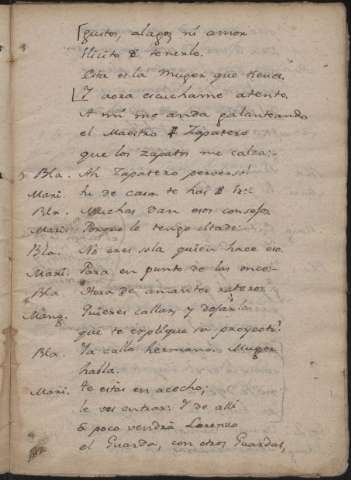 gustos, alagos ni amor
licito è tenerle.
Esta es la Muger que tienes.
Y aora escuchame atento.
A mi me anda galanteando
el Maestro Zapatero
que los zapatos me calza:
Bla. Ah Zapatero perverso!
Mari. de casa te has
Bla. Muchas dan esos consejos
Mari. Porque le tengo citado
Bla. No eres sola quien hace eso
Mari. Para en punto de las once:
Bla. Hora de amantes rateros
Mang. Quieres callar, y dejarla
que te explique su proyecto?
Bla. Ya calla hermana: Muger
habla.
Mari. te estas en acecho,
le ves entrar: Y de alli
à poco vendrà Lorenzo
el Guarda, con otros Guardas,